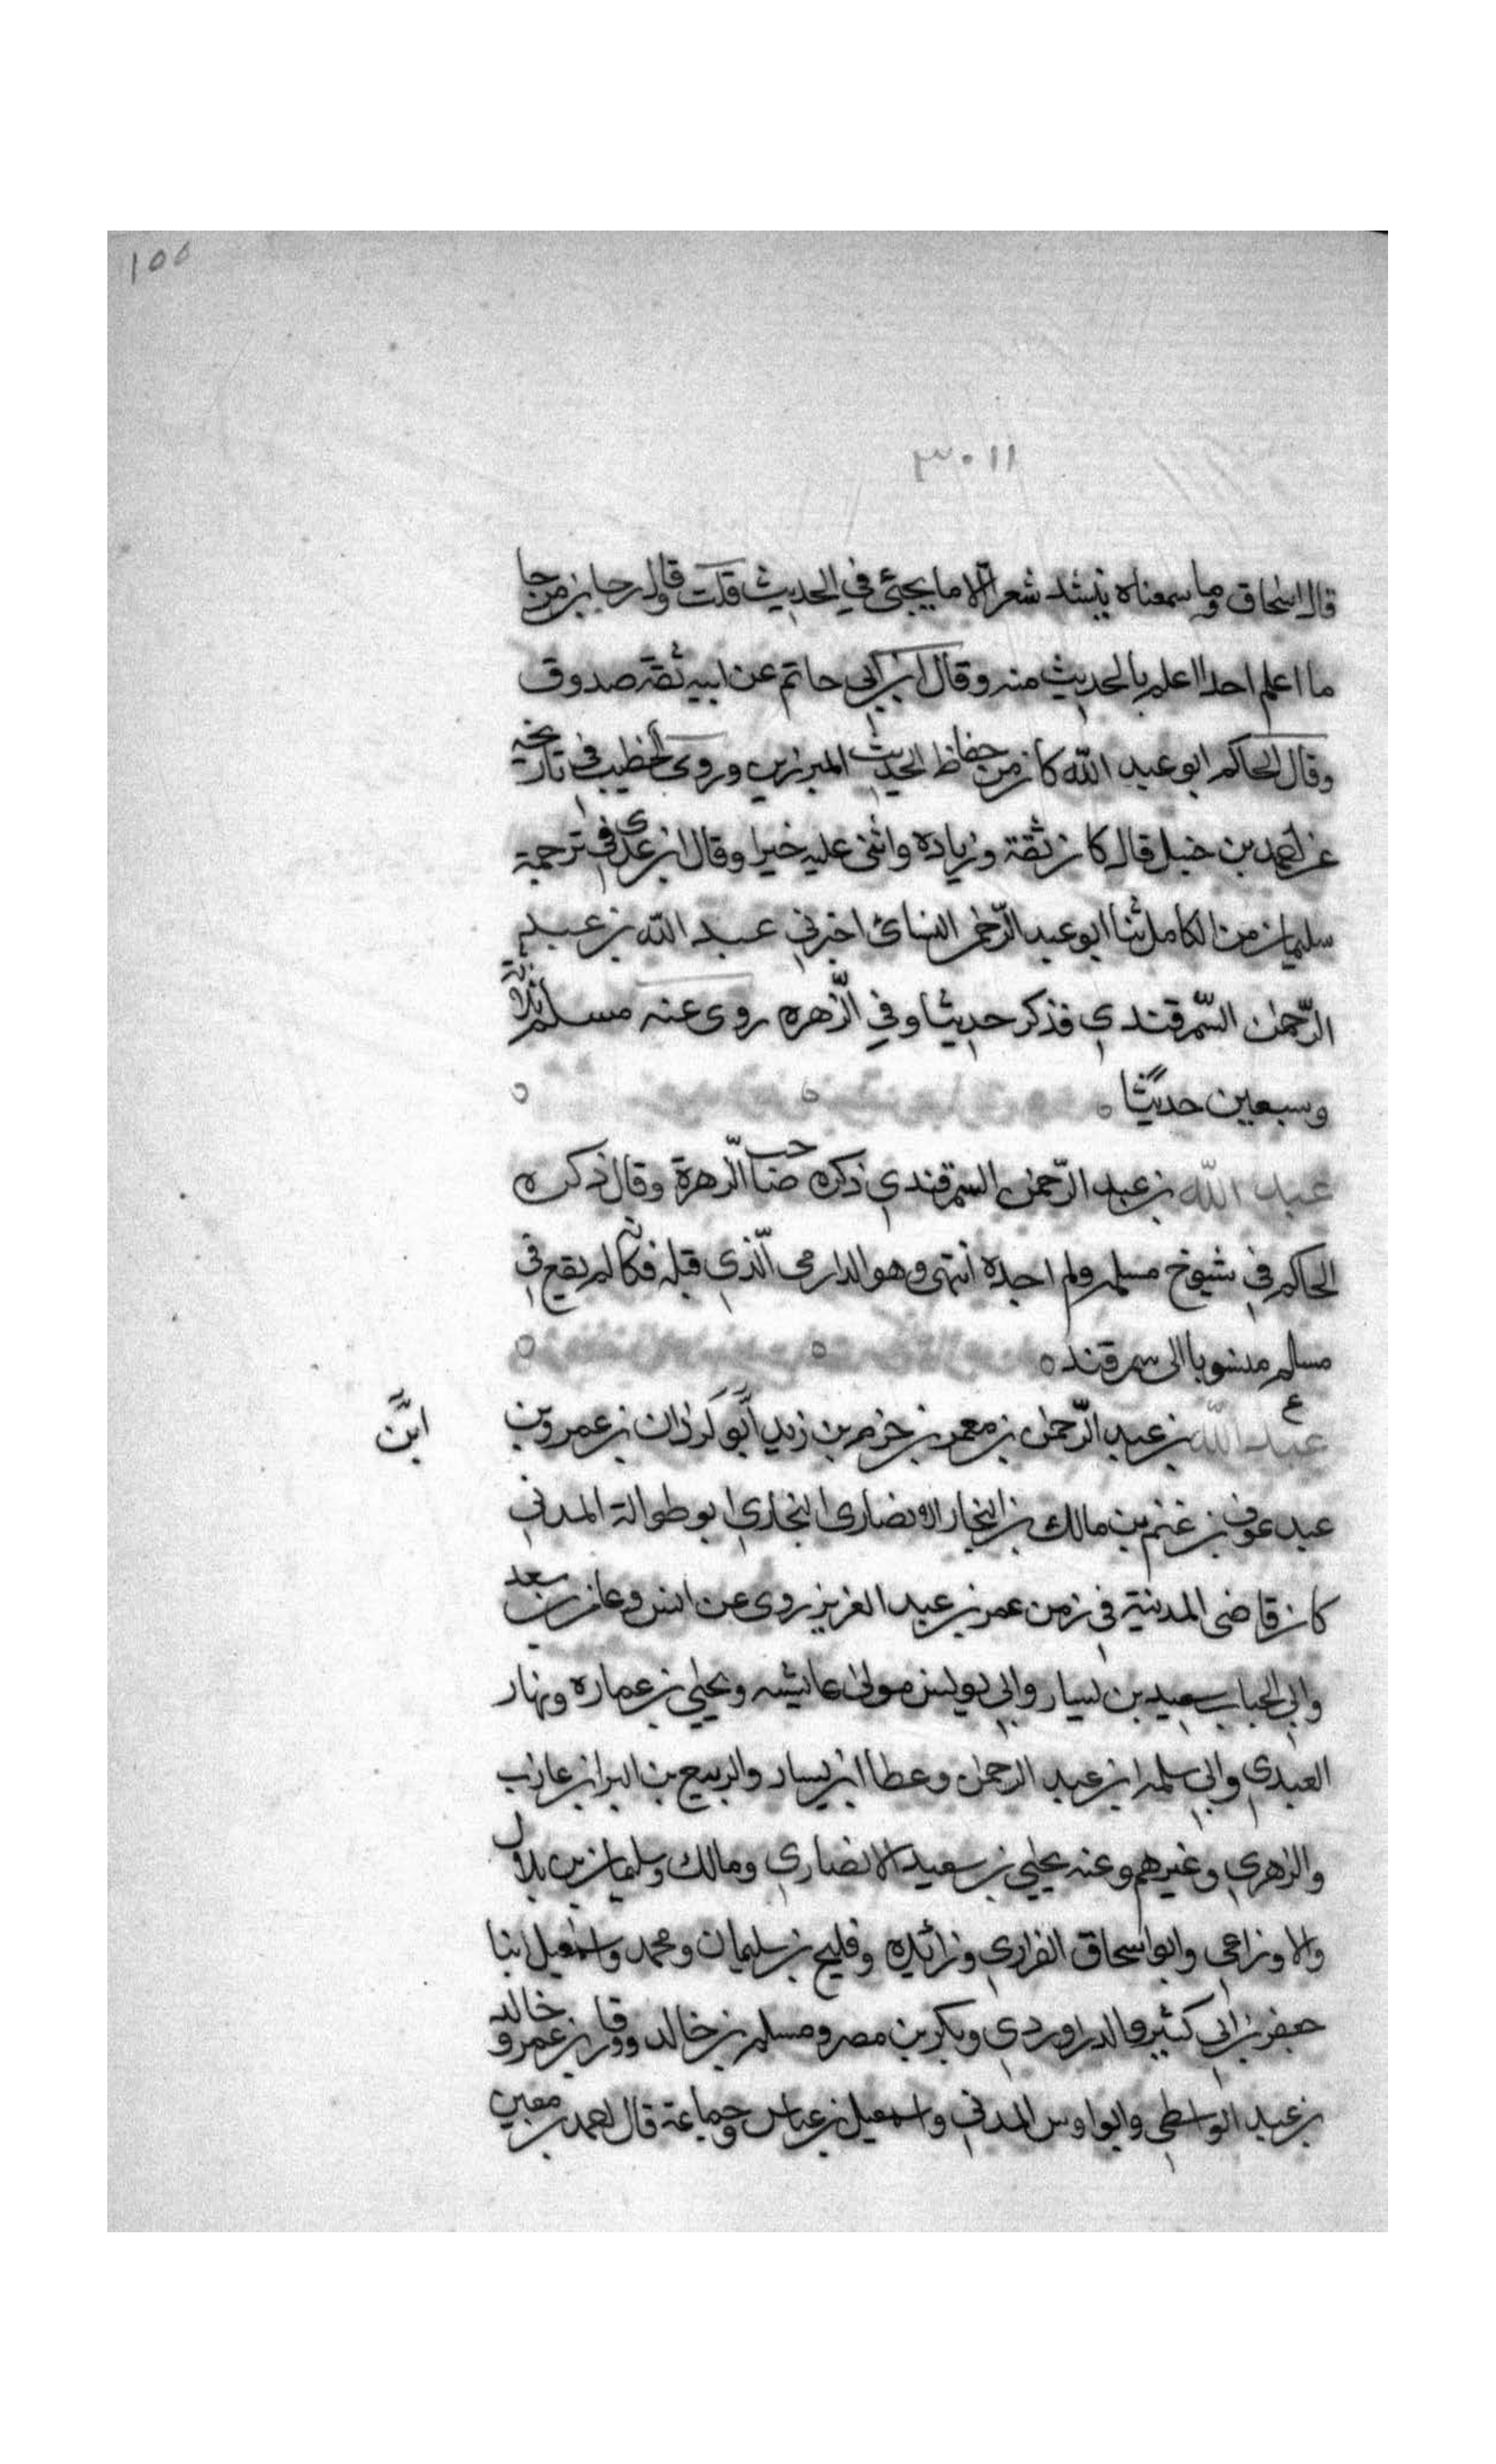 ١٥٥
٣٠١١
قال اسحاق وما سمعناه ينشد شعرا الا ما يجئ في الحديث قلت وقال رجا بن مرجا
ما اعلم احدا اعلم بالحديث منه وقال ابن ابي حاتم عن ابيه ثقة صدوق
وقال الحاكم ابو عبد الله كان من حفاظ الحديث المبرزين وروى الخطيب في تاريخه
عن احمد بن حنبل قال كان ثقة وزيادة واثنى عليه خيرا وقال ابن عدى في ترجمة
سليمان من الكامل ثنا ابو عبد الرحمن النسائ اخبرني عبد الله بن عبد
الرحمن السمرقندي فذكر حديثا وفي الزهره روى عنه مسلم ثلاثة
وسبعين حديثا
عبد الله بن عبد الرحمن السمرقندي ذكره صاحب الزهرة وقال ذكره
الحاكم في شيوخ مسلم ولم اجده انتهى وهو الدارمى الذي قبله فكانه لم يقع في
مسلم منسوبا الى سمرقند
ع
عبد الله بن عبد الرحمن بن معمر بن حزم بن زيد ابو كوذان بن عمرو بن
ابن
عبد عوف بن غنم بن مالك بن النجار الانصارى النجاري ابو طوالة المدني
كان قاضى المدينة في زمن عمر بن عبد العزيز روى عن انس وعامر بن سعد
وابي الحباب سعيد بن يسار وابي يونس مولى عايشه ويحيي بن عماره ونهار
العبدي وابي سلمه ابن عبد الرحمن وعطا ابن يسار والربيع بن البرا بن عازب
والزهري وغيرهم وعنه يحيي بن سعيد الانصاري ومالك وسليمان بن بلال
والاوزاعي وابو اسحاق الفزاري وزائيده وفليح بن سليمان ومحمد واسمعيل ابنا
جعفر بن ابي كثير والدراوردي وبكر بن مصر ومسلم بن خالد وورقا بن عمرو وخالد
بن عبد الواسطي وابو اوس المدني واسمعيل بن عياس وجماعة قال احمد بن معين